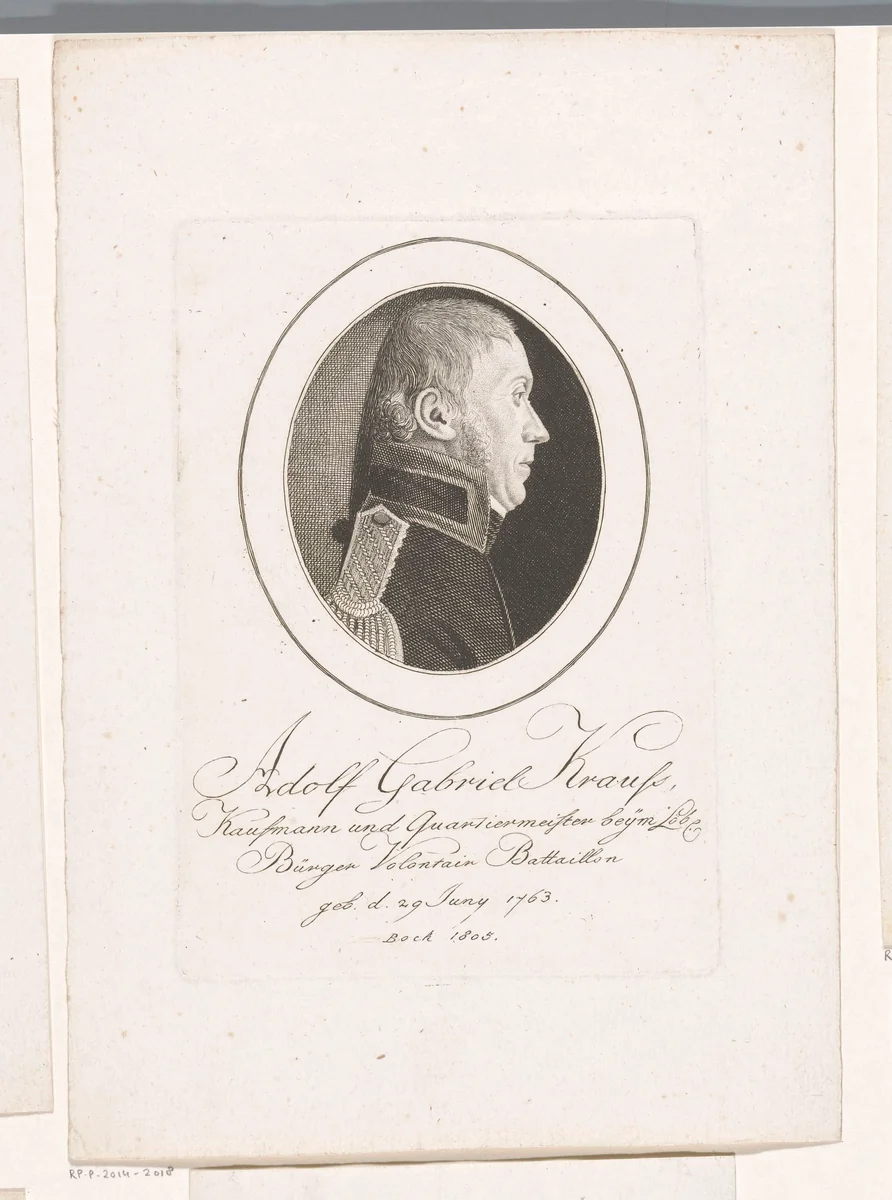 Adolf Gabriel Krauſs,
Kaufmann und Quartiermeiſter beÿm Löb:
Bürger Volontair Battaillon
geb. d. 29 Juny 1763.
Bock 1805.
RP-P-2014-2018
R